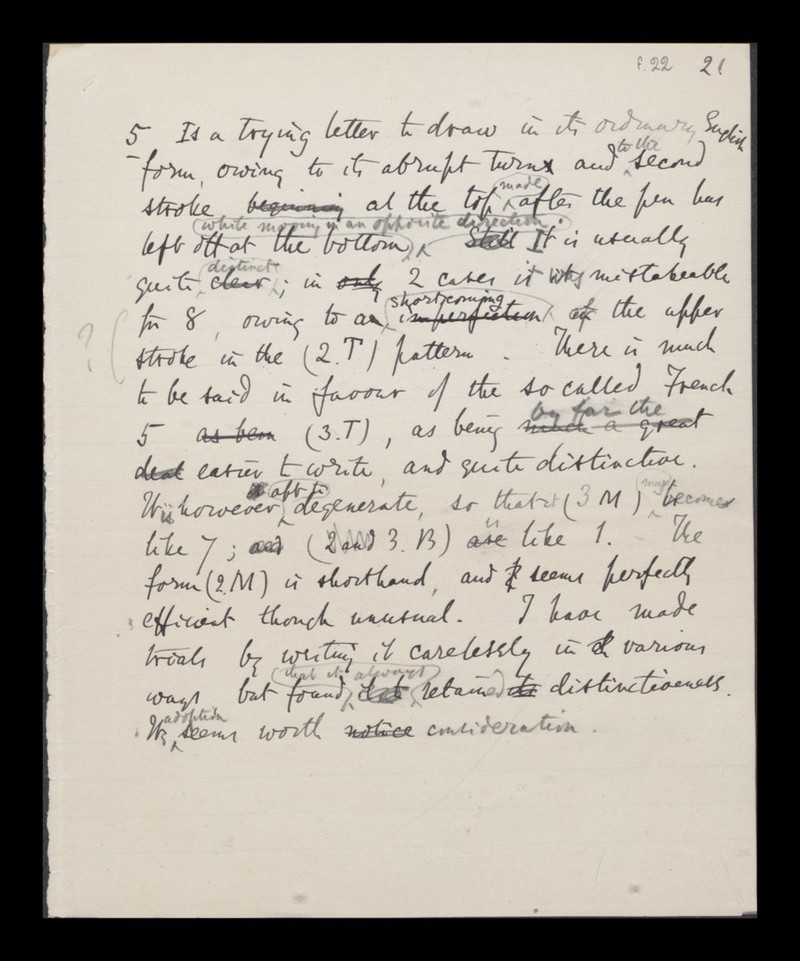 f.22 21
5 Is a trying letter to draw in its ordinary English
form, owing to its abrupt turns and to the second
stroke beginning at the top made after the pen has
while moving in an opposite direction.
left off at the bottom, It is usually
quite clear distinct; in only 2 cases it is mistakeable
for 8, owing to a imperfection shortcoming of the upper
? stroke in the (2.T) pattern. There is much
to be said in favour of the so called French
5 as bein (3.T), as being much a great by far the
deal easier to write, and quite distinctive.
It is however apt to degenerate, so that (3 M) may becomes
like 7; and (2 and 3. B) are is like 1. The
form (2.M) is shorthand, and seems perfectly
efficient though unusual. I have made
trials by writing it carelessly in various
that it always
ways but found retained its distinctiveness.
Its adoption seems worth notice consideration.